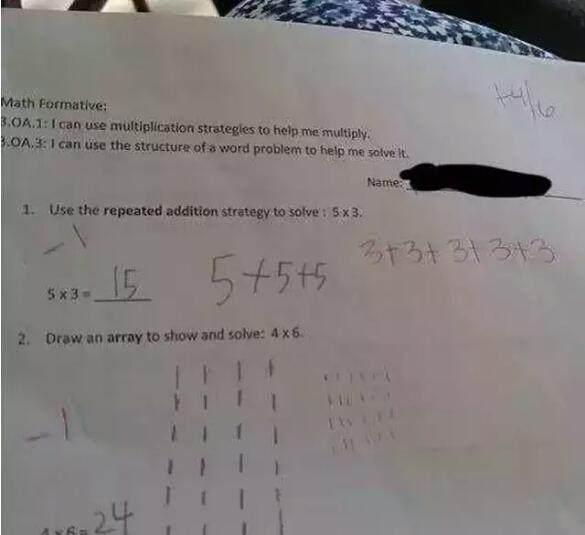 +4/6
Math Formative:
3.OA.1: I can use multiplication strategies to help me multiply.
3.OA.3: I can use the structure of a word problem to help me solve it.
Name:
1. Use the repeated addition strategy to solve : 5 x 3.
-1
3+3+3+3+3
5 x 3 = 15 5+5+5
2. Draw an array to show and solve: 4 x 6.
-1
4 x 6= 24